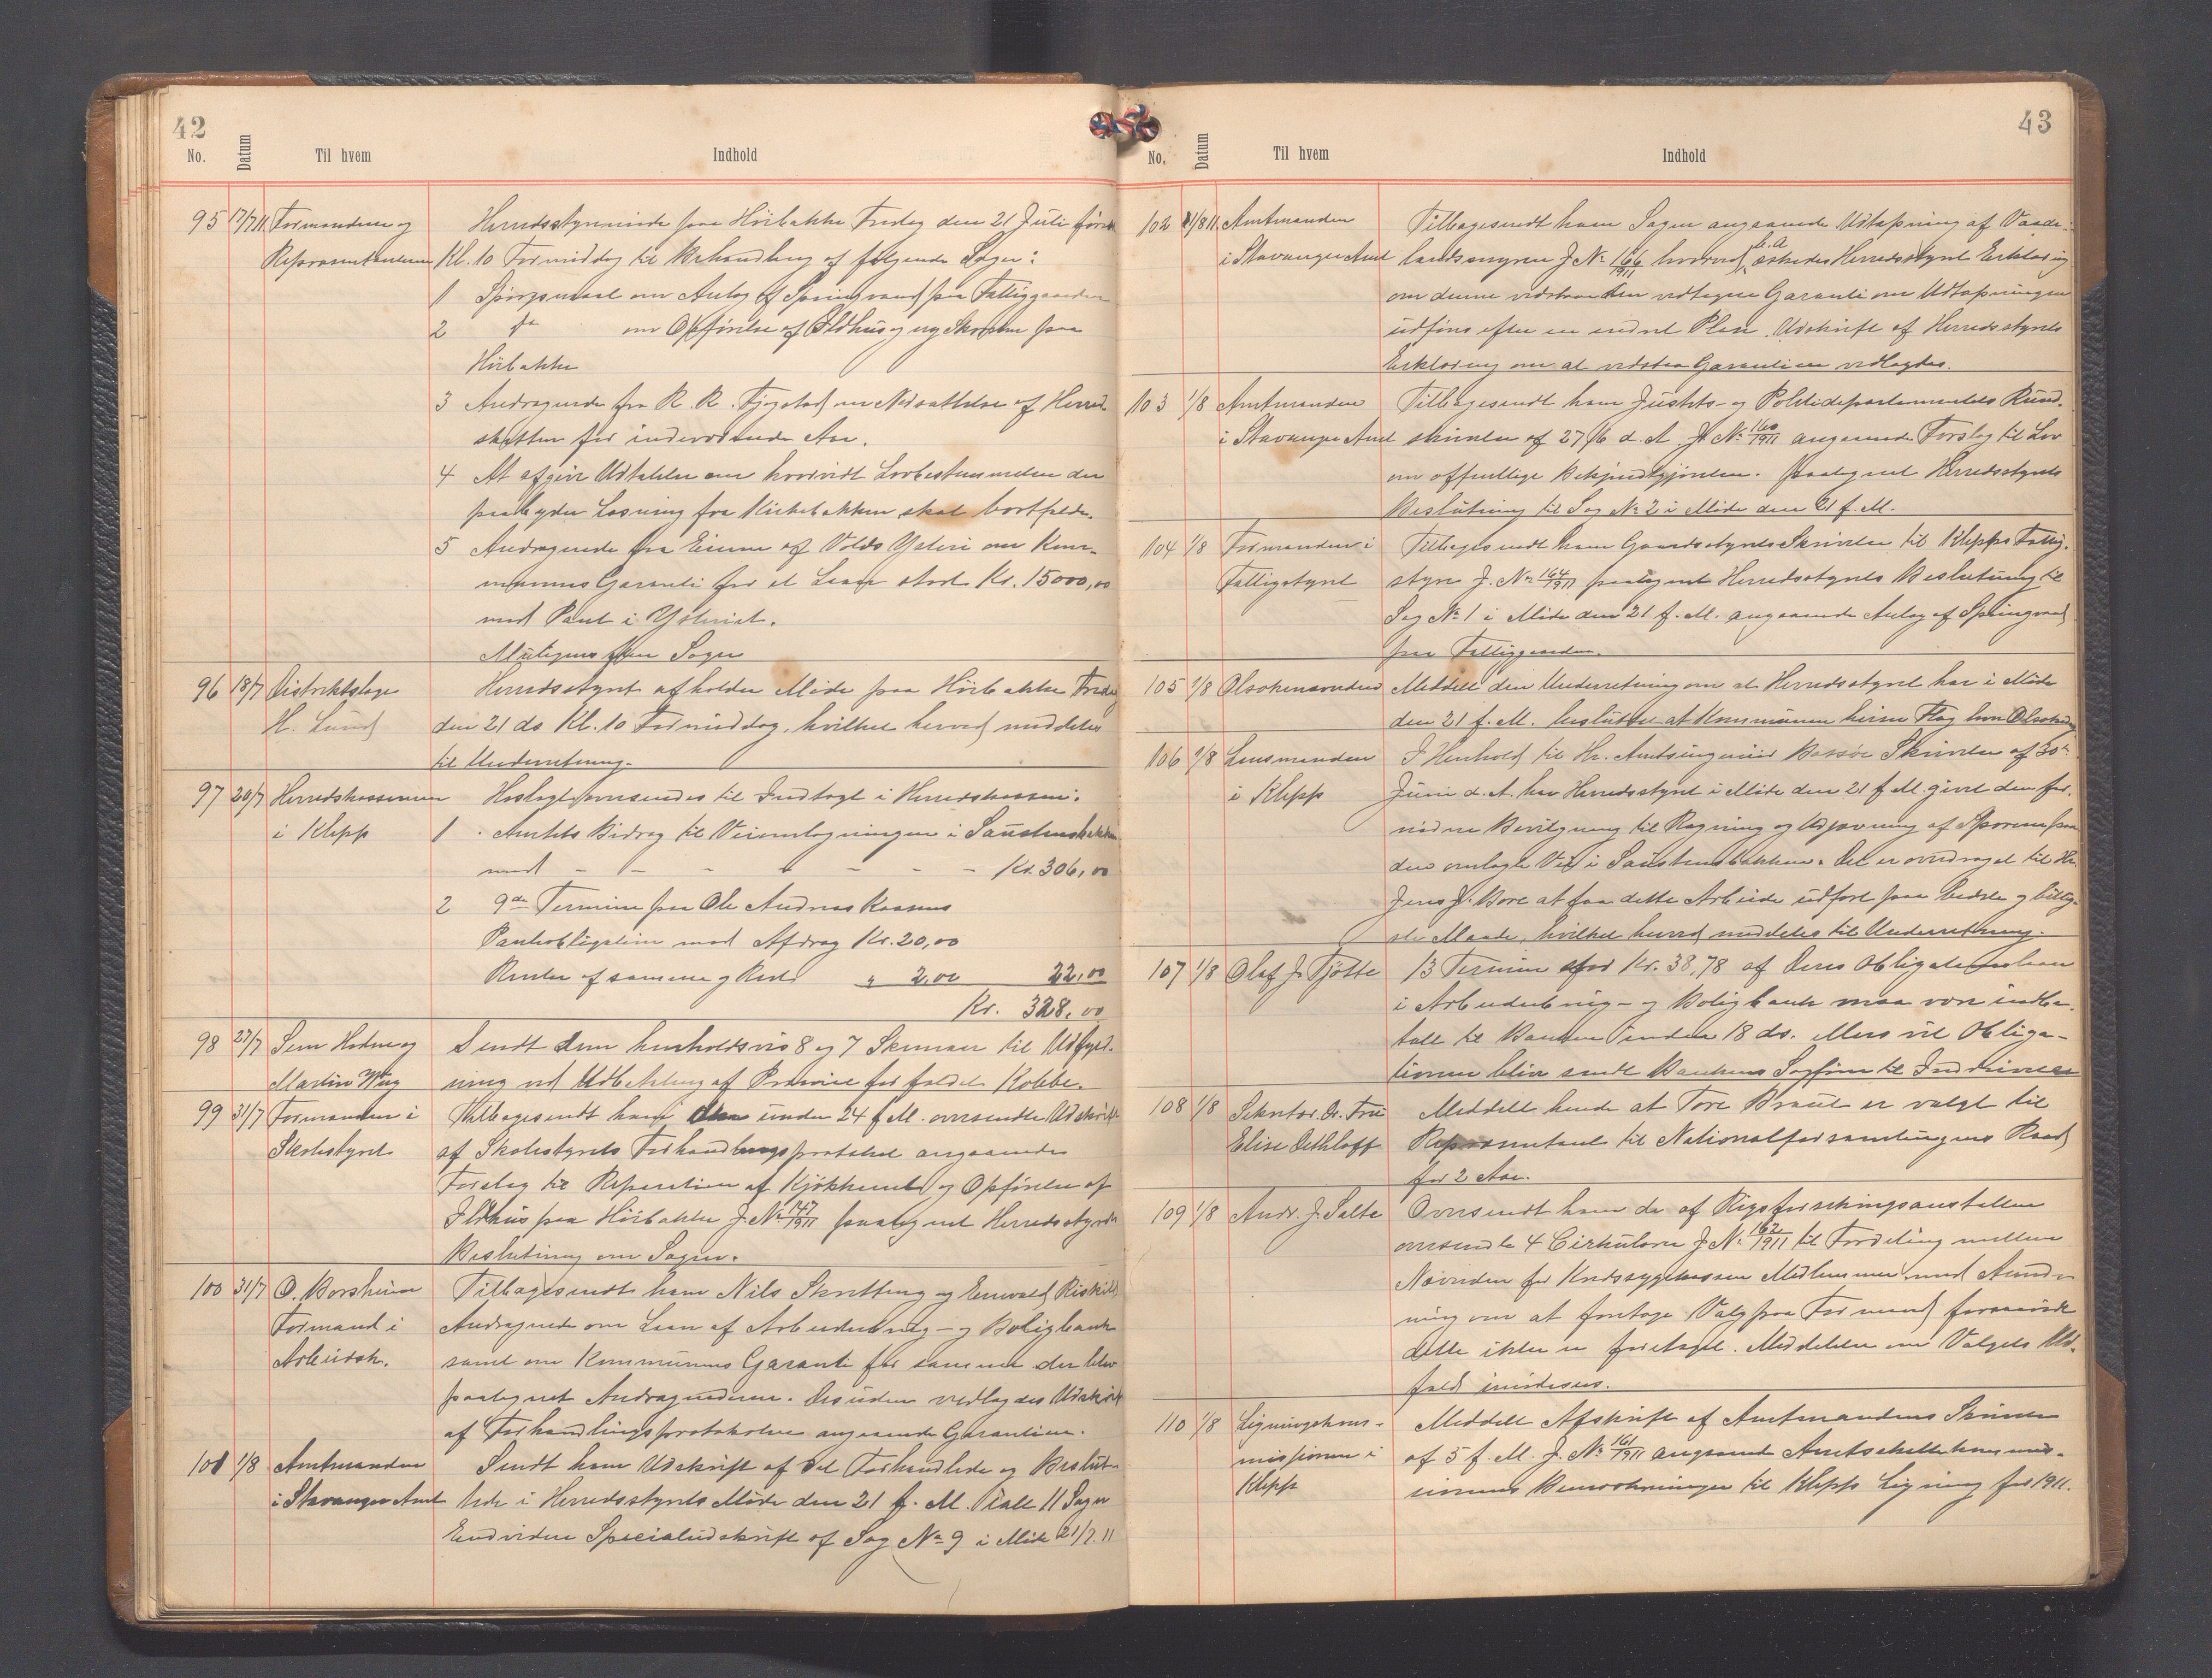 42
No. Datum Til hvem Indhold
95 17/7 11 Formændene og Herredsstyremøde paa Hörbakke Fredag den 21 Juli förstk
Repræsentanterne Kl. 10 Formiddag til Behandling af følgende Sager:
1 Spörgsmaal om Anlæg af Springvand paa Fattiggaarden
2 do om Opförelse af Ildhus og ny Skorsten paa
Hörbakke
3 Andragende fra R. R. Tjøgstad om Nedsættelse af Herred
skatten for inderværende Aar.
4 At afgive Udtalelse om hvorvidt Lovbestemmelsen der
paabyder Læsning fra Kirkebakken skal bortfalde.
5 Andragende fra Eierne af Volds Ysteri om Kom-
munens Garanti for et Laan stort Kr. 15000,00
med Pant i Ysteriet.
Muligens flere Sager
96 18/7 Distriktslæge Herredsstyret afholder Möde paa Hörbakke Fredag
H. Lund den 21 ds Kl. 10 Formiddag, hvilket herved meddeles
til Underretning.
97 20/7 Herredskassereren Hoslagt oversendes til Indtægt i Herredskassen:
i Klepp 1 Amtets Bidrag til Veiomlægningen i Saustensbakken
med - - - - - - - Kr. 306,00
2 9de Termin paa Ole Andreas Kaasens
Panteobligation med Afdrag Kr. 20,00
Renter af samme og Rest " 2,00 22,00
Kr. 328,00
98 27/7 Sem Hodne og Sendt dem henholdsvis 8 og 7 Skemaer til Udfyld-
Martin Wiig ning ved Udbetaling af Præmie for fældet Kobbe.
99 31/7 Formanden i Tilbagesendt ham den under 24 f. M. oversendte Udskrift
Skolestyret af Skolestyrets Forhandlingsprotokol angaaende
Forslag til Reparation af Kjøkkenet og Opförelse af
Ildhus paa Hörbakke J. No 147/1911 paategnet Herredsstyrets
Beslutning om Sagen.
100 31/7 O. Borsheim Tilbagesendt ham Nils Skretting og Enevald Riskild
Formand i Andragende om Laan af Arbeiderbrug- og Boligbank
Arbeidsk. samt om Kommunens Garanti for samme der blev
paategnet Andragenderne. Desuden vedlagdes Udskrift
af Forhandlingsprotokolen angaaende Garantien.
101 1/8 Amtmanden Sendt ham Udskrift af det Forhandlede og Beslut-
i Stavanger Amt tede i Herredsstyrets Möde den 21 f. M. Ialt 11 Sager
Endvidere Specialudskrift af Sag No 9 i Möde 21/7. 11
43
No. Datum Til hvem Indhold
102 1/8 11 Amtmanden Tilbagesendt ham Sagen angaaende Udtapning af Vaade-
i Stavanger Amt landsmyren J No 166/1911 hvorved bl.a. æskedes Herredsstyrets Erklæring
om denne vedstaar den vedtagne Garanti om Udtapningen
udføres efter en endret Plan. Udskrift af Herredsstyrets
Erklæring om at vedstaa Garantien vedlagdes.
103 1/8 Amtmanden Tilbagesendt ham Justits- og Politidepartementets Rund-
i Stavanger Amt skrivelse af 27/6 d. A. J. No 160/1911 angaaende Forslag til Lov
om offentlige Bekjendtgjörelser. paategnet Herredsstyrets
Beslutning til Sag No 2 i Möde den 21 f. M.
104 1/8 Formanden i Tilbagesendt ham Gaardsstyrets Skrivelse til Klepps Fattig-
Fattigstyret styre J. No 164/1911 paategnet Herredsstyrets Beslutning til
Sag No 1 i Möde den 21 f. M. angaaende Anlæg af Springvand
paa Fattiggaarden.
105 1/8 Olsoknevnden Meddelt den Underretning om at Herredsstyret har i Möde
den 21 f. M. besluttet at Kommunen heiser Flag hver Olsokdag
106 1/8 Lensmanden I Henhold til Hr. Amtsingeniör Bassøe Skrivelse af 30te
i Klepp Juni d. A. har Herredsstyret i Möde den 21 f M. givet den for-
nödne Bevilgning til Rægning og Udjævning af Sporene paa
den omlagte Vei i Saustensbakken. Det er overdraget til Hr.
Jens J. Bore at faa dette Arbeide udfört paa bedste og billig-
ste Maade, hvilket herved meddeles til Underretning.
107 1/8 Olaf J. Tjötta 13 Termin stor Kr. 38,78 af Deres Obligationslaan
i Arbeiderbrug- og Boligbank maa være indbe-
talt til Banken inden 18 ds. Mens vil Obliga-
tionen bliver sendt Bankens Sagförer til Inddrivelse
108 1/8 Sekretær. Dr. Frk Meddelt hende at Tore Braut er valgt til
Elise Dethloff Repræsentant til Nationalforsamlingens Raad
for 2 Aar.
109 1/8 Andr. J. Salte Oversendt ham de af Rigsforsikringsanstalten
oversendte 4 Cirkulære J No 162/1911 til Fordeling mellem
Nævnden for Kredssygekassen Medlemmer med Anmod-
ning om at foretage Valg paa Formand forsaavidt
dette ikke er foretaget. Meddelelse om Valgets Ud-
fald imødesees.
110 1/8 Ligningskom- Meddelt Afskrift af Amtmandens Skrivelse
missionen i af 5 f. M. J. No 161/1911 angaaende Amtsskattekommis-
Klepp sionens Bemærkninger til Klepps Ligning for 1911.